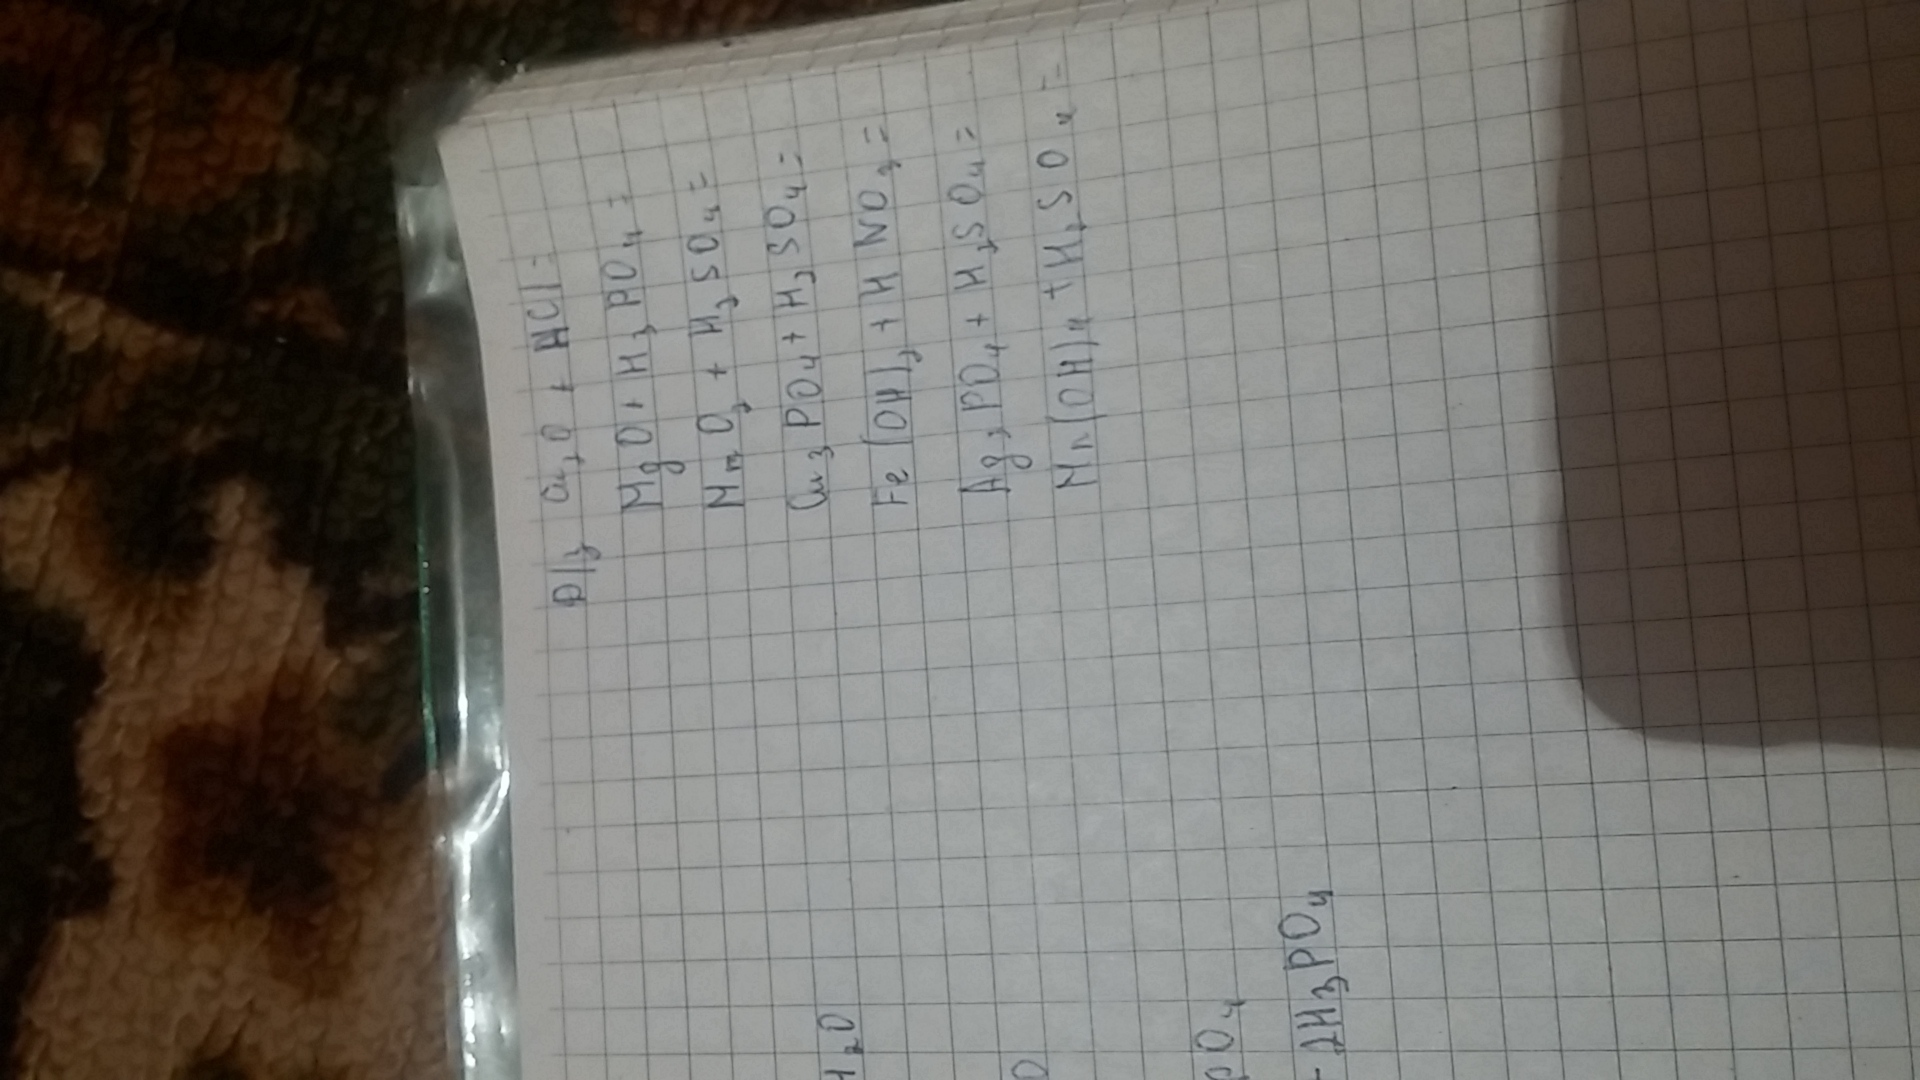 D/з Cu₂O + HCl =
MgO + H₃PO₄ =
MnO₂ + H₂SO₄ =
Cu₃PO₄ + H₂SO₄ =
Fe(OH)₂ + HNO₃ =
Ag₃PO₄ + H₂SO₄ =
Mn(OH)₄ + H₂SO₄ =
H₂O
O
PO₄
2H₃PO₄